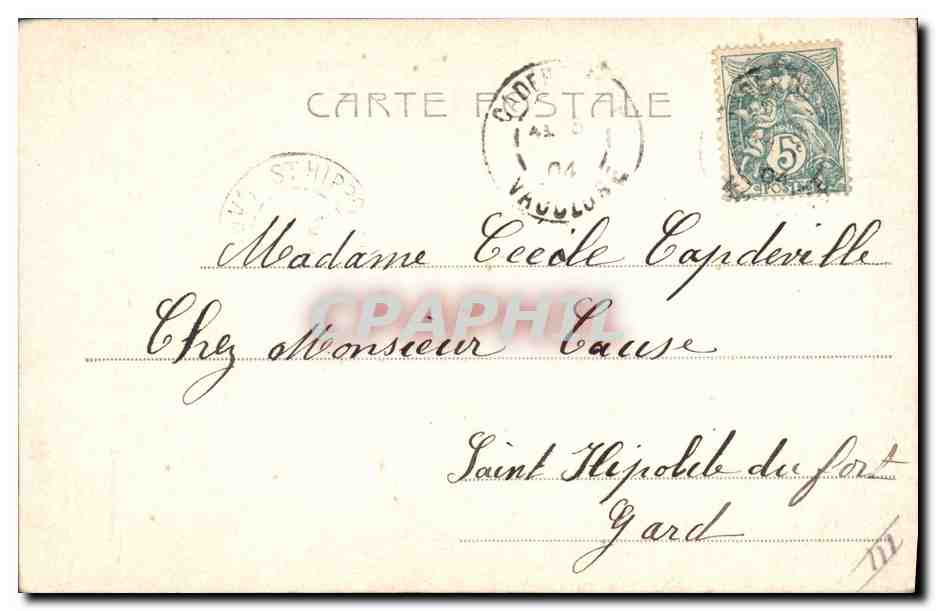 CARTE POSTALE
04
5c
04
POSTES
ST HIPPO
Madame Cecile Capdeville
Chez Monsieur Cause
CPAPHIL
Saint Hipolite du fort
Gard